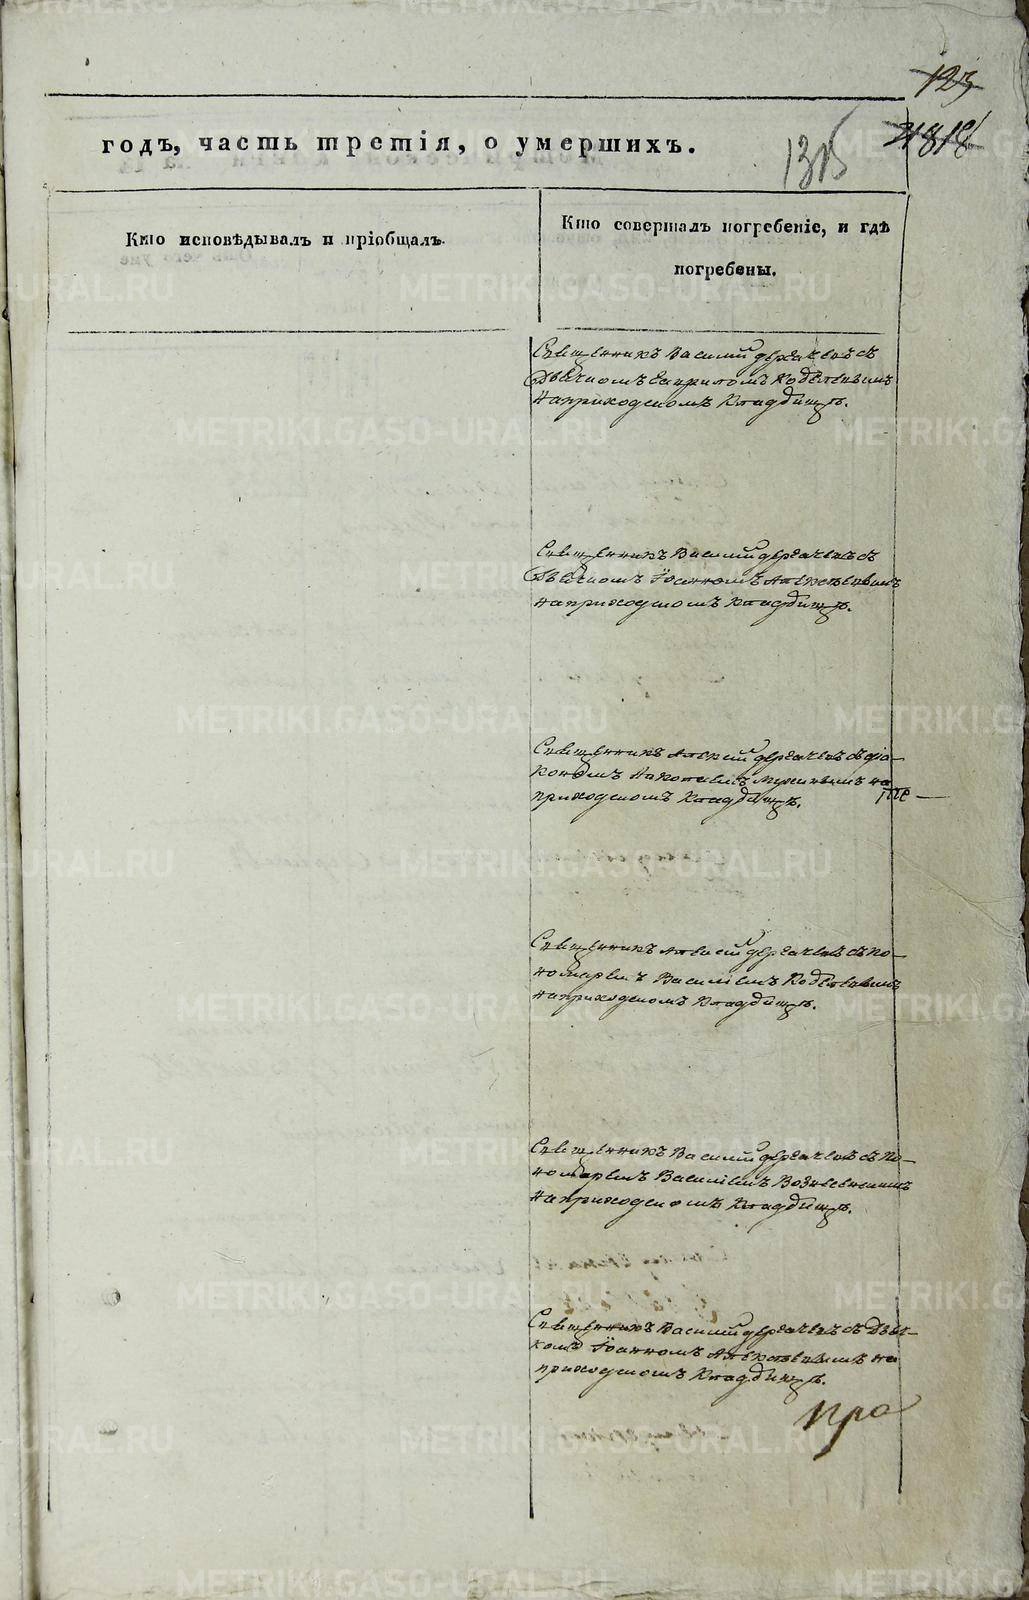 123
годъ, часть третія, о умершихъ.
1315
Кто исповѣдывалъ и пріобщалъ.
Кто совершалъ погребеніе, и гдѣ
погребены.
Священникъ Василій Дергачевъ съ
Дьячкомъ Кодѣлевымъ
на приходскомъ кладбищѣ.
Священникъ Василій Дергачевъ съ
Дьячкомъ Іоанномъ Алексѣевымъ
на приходскомъ кладбищѣ.
Священникъ Алексій Дергачевъ съ діа-
кономъ на
приходскомъ кладбищѣ.
Священникъ Алексій Дергачевъ съ по-
номаремъ Василіемъ Кодѣлевымъ
на приходскомъ кладбищѣ.
Священникъ Василій Дергачевъ съ по-
номаремъ Василіемъ
на приходскомъ кладбищѣ.
Священникъ Василій Дергачевъ съ Дьяч-
комъ Іоанномъ Алексѣевымъ на
приходскомъ кладбищѣ.
METRIKI.GASO-URAL.RU